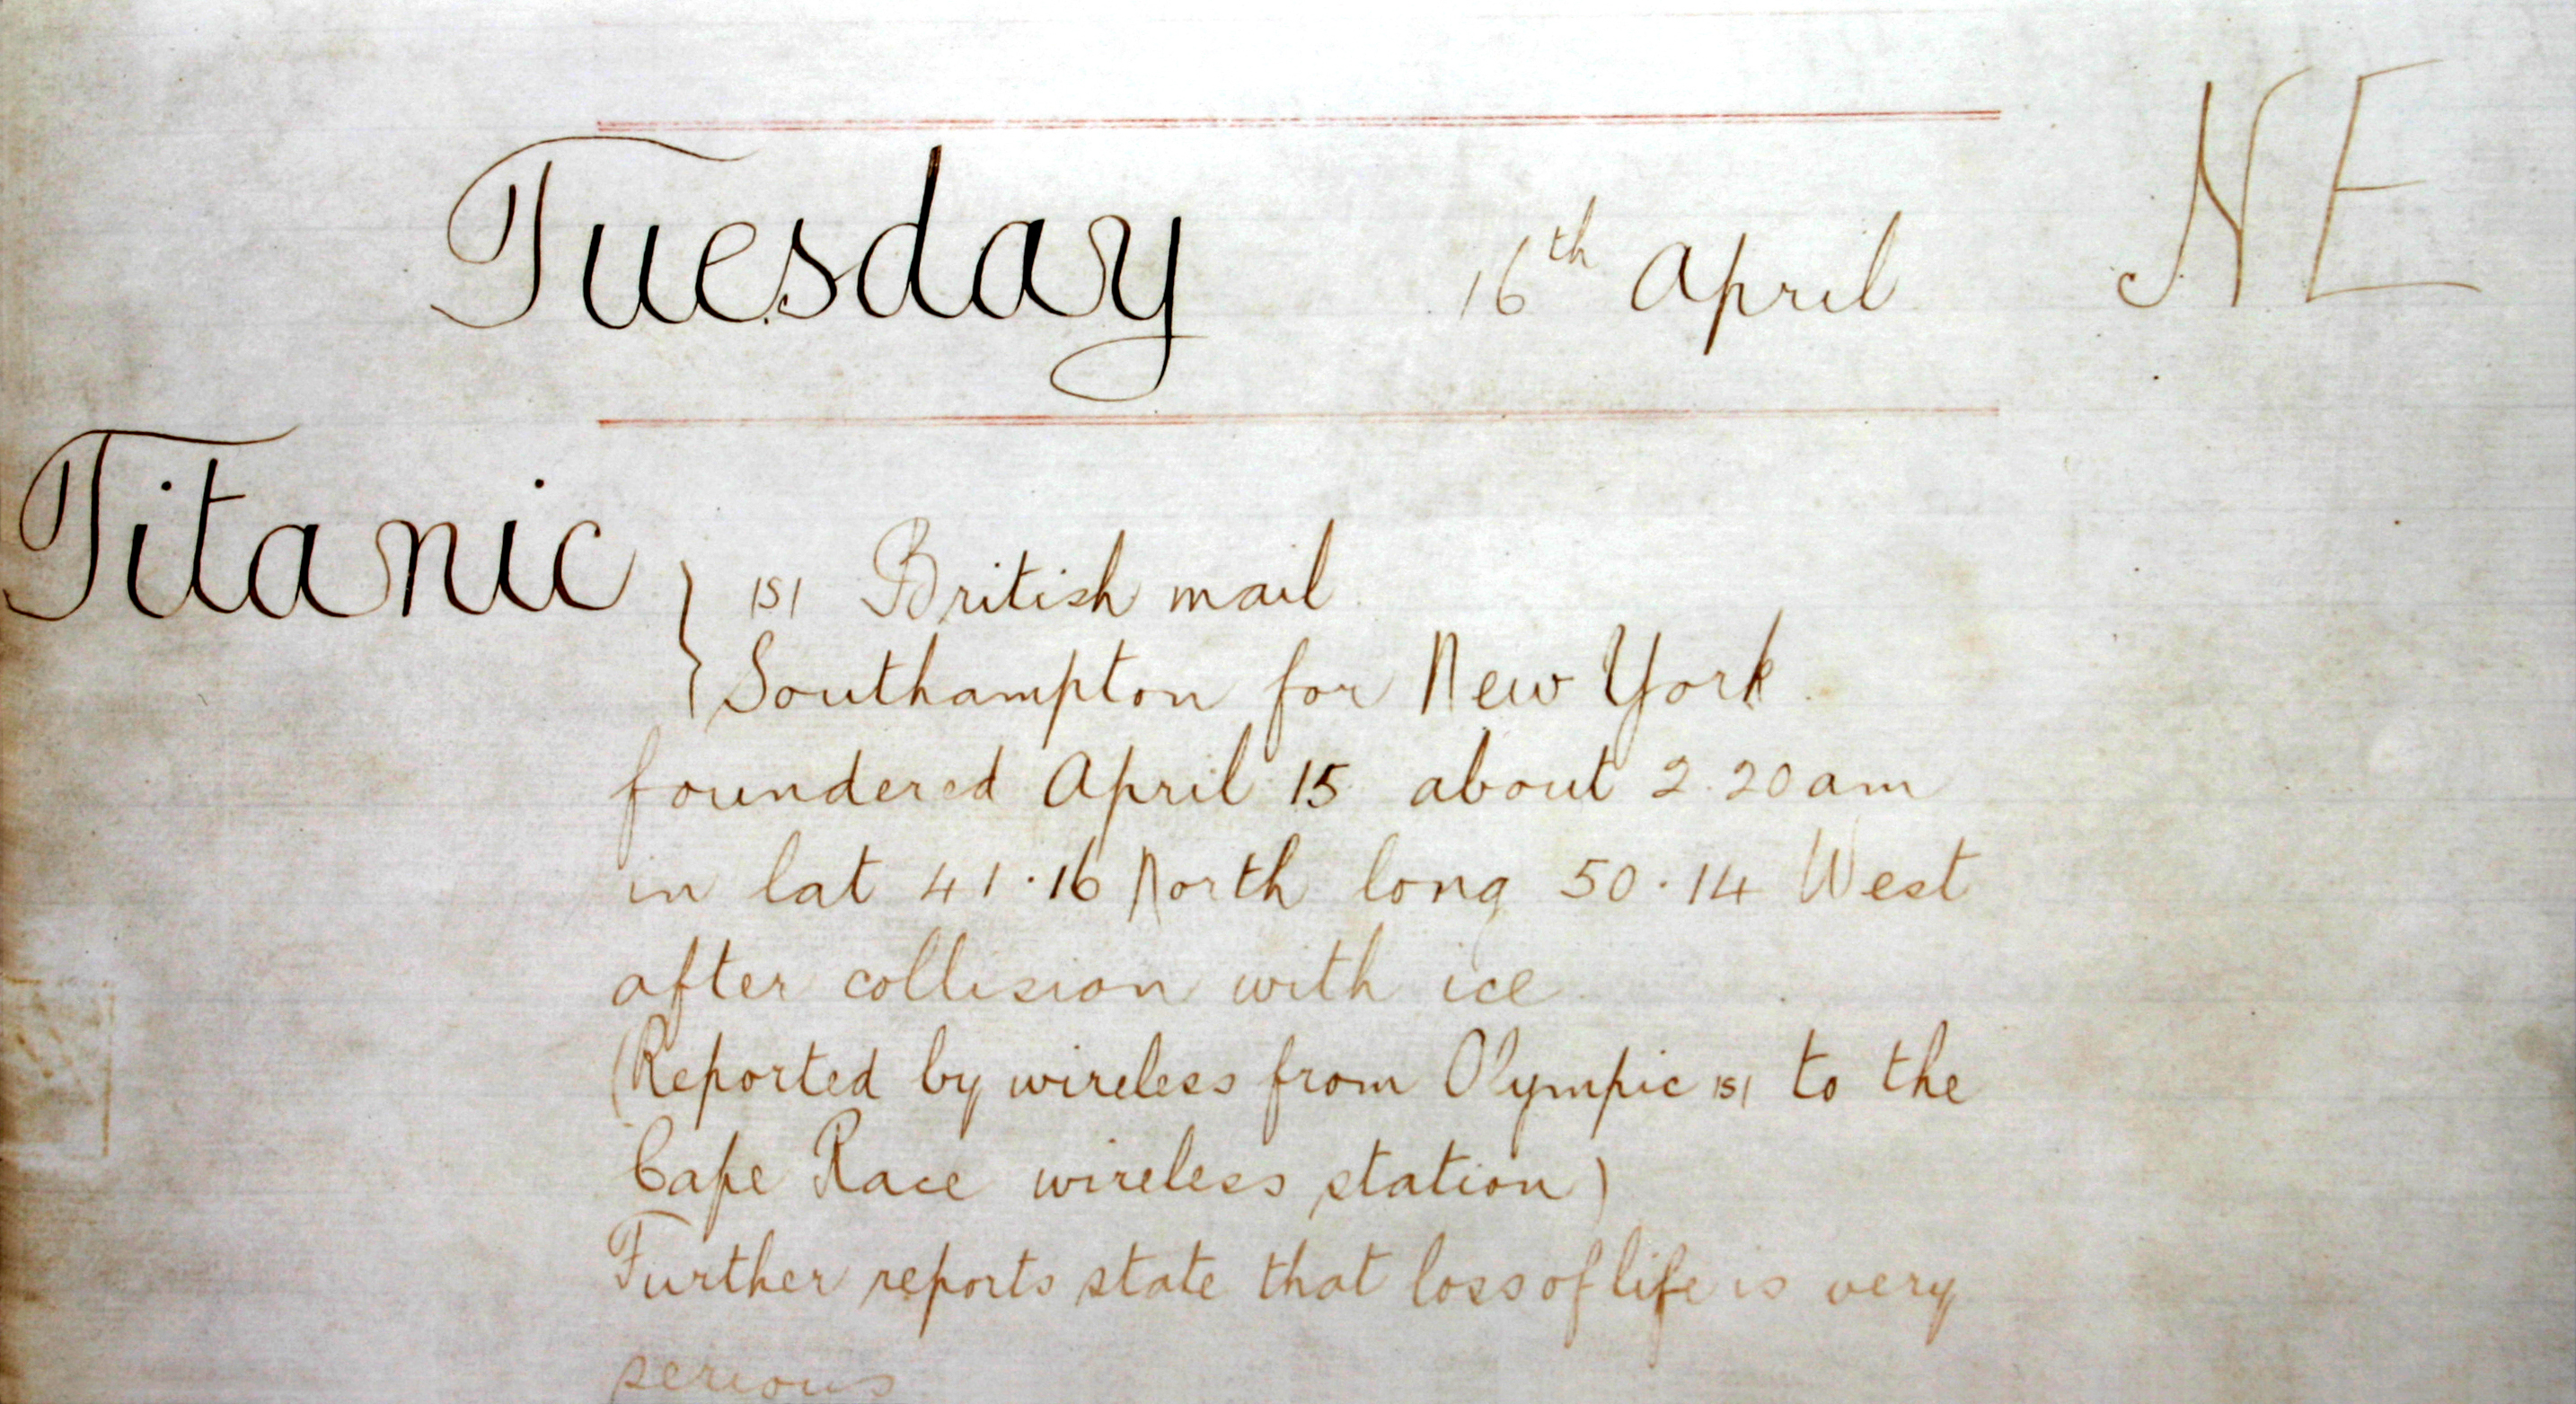 Tuesday 16th April NE
Titanic } |S| British mail
Southampton for New York
foundered April 15 about 2.20am
in lat 41.16 North long 50.14 West
after collision with ice
(Reported by wireless from Olympic |S| to the
Cape Race wireless station)
Further reports state that loss of life is very
serious